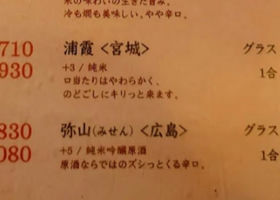 米の味わいの生きた旨み。
冷も燗も美味しい。やや辛口。
710 浦霞 <宮城> グラス
930 +3 / 純米 1合
口当たりはやわらかく、
のどごしにキリっと来ます。
830 弥山(みせん) <広島> グラス
080 +5 / 純米吟醸原酒 1合
原酒ならではのズシっとくる辛口。